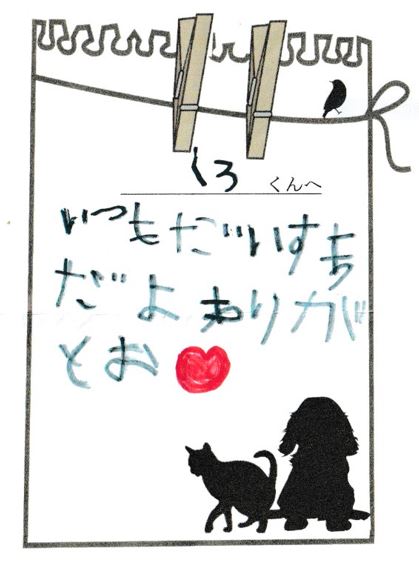 くろ くんへ
いつもだいすち
だよ ありが
とお